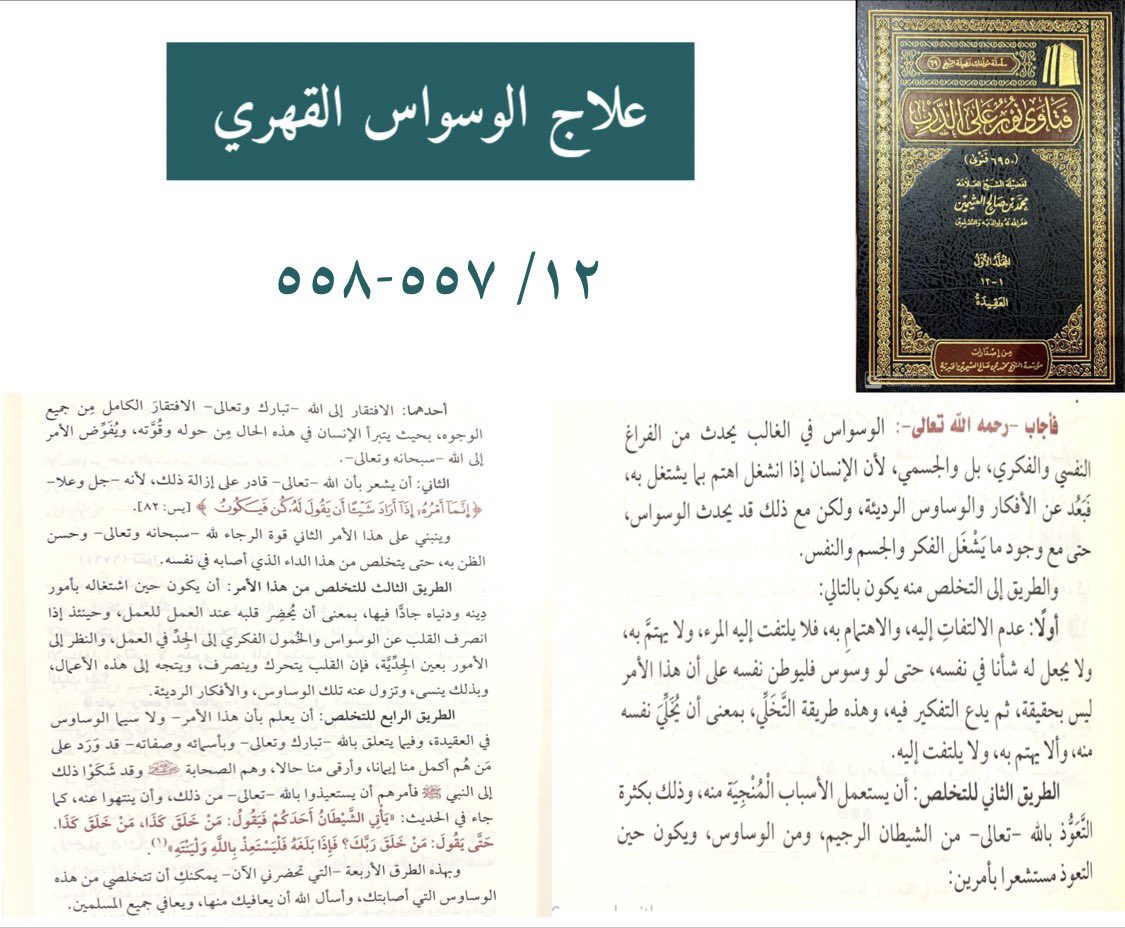 علاج الوسواس القهري
١٢/ ٥٥٧-٥٥٨
فتاوى نور على الدرب
(٦٩٥٠ فتوى)
لفضيلة الشيخ العلامة
محمد بن صالح العثيمين
غفر الله له ولوالديه وللمسلمين
المجلد الأول
١-١٢
العقيدة
من إصدارات
مؤسسة الشيخ محمد بن صالح العثيمين الخيرية
فأجاب -رحمه الله تعالى-: الوسواس في الغالب يحدث من الفراغ
النفسي والفكري، بل والجسمي، لأن الإنسان إذا انشغل اهتم بما يشتغل به،
فَبَعُد عن الأفكار والوساوس الرديئة، ولكن مع ذلك قد يحدث الوسواس،
حتى مع وجود ما يَشْغَل الفكر والجسم والنفس.
والطريق إلى التخلص منه يكون بالتالي:
أولًا: عدم الالتفاتِ إليه، والاهتمامِ به، فلا يلتفت إليه المرء، ولا يهتمَّ به،
ولا يجعل له شأنا في نفسه، حتى لو وسوس فليوطن نفسه على أن هذا الأمر
ليس بحقيقة، ثم يدع التفكير فيه، وهذه طريقة التَّخَلِّي، بمعنى أن يُخَلِّيَ نفسه
منه، وألا يهتم به، ولا يلتفت إليه.
الطريق الثاني للتخلص: أن يستعمل الأسباب الْمُنْجِيَة منه، وذلك بكثرة
التَّعَوُّذ بالله -تعالى- من الشيطان الرجيم، ومن الوساوس، ويكون حين
التعوذ مستشعرا بأمرين:
أحدهما: الافتقار إلى الله -تبارك وتعالى- الافتقارَ الكامل مِن جميع
الوجوه، بحيث يتبرأ الإنسان في هذه الحال مِن حوله وقُوَّته، ويُفَوِّض الأمر
إلى الله -سبحانه وتعالى-.
الثاني: أن يشعر بأن الله -تعالى- قادر على إزالة ذلك، لأنه -جل وعلا-
﴿إِنَّمَآ أَمْرُهُۥٓ إِذَآ أَرَادَ شَيْـًٔا أَن يَقُولَ لَهُۥ كُن فَيَكُونُ﴾ [يس: ٨٢].
وينبني على هذا الأمر الثاني قوة الرجاء لله -سبحانه وتعالى- وحسن
الظن به، حتى يتخلص من هذا الداء الذي أصابه في نفسه.
الطريق الثالث للتخلص من هذا الأمر: أن يكون حين اشتغاله بأمور
دِينه ودنياه جادًّا فيها، بمعنى أن يُحضِر قلبه عند العمل للعمل، وحينئذ إذا
انصرف القلب عن الوسواس والخُمول الفكري إلى الجِدِّ في العمل، والنظر إلى
الأمور بعين الجِدِّيَّة، فإن القلب يتحرك وينصرف، ويتجه إلى هذه الأعمال،
وبذلك ينسى، وتزول عنه تلك الوساوس، والأفكار الرديئة.
الطريق الرابع للتخلص: أن يعلم بأن هذا الأمر- ولا سيما الوساوس
في العقيدة، وفيما يتعلق بالله -تبارك وتعالى- وبأسمائه وصفاته- قد وَرَد على
مَن هُم أكمل منا إيمانا، وأرقى منا حالا، وهم الصحابة رضي الله عنهم وقد شَكَوْا ذلك
إلى النبي ﷺ فأمرهم أن يستعيذوا بالله -تعالى- من ذلك، وأن ينتهوا عنه، كما
جاء في الحديث: «يَأْتِي الشَّيْطَانُ أَحَدَكُمْ فَيَقُولُ: مَنْ خَلَقَ كَذَا، مَنْ خَلَقَ كَذَا.
حَتَّى يَقُولَ: مَنْ خَلَقَ رَبَّكَ؟ فَإِذَا بَلَغَهُ فَلْيَسْتَعِذْ بِاللَّهِ وَلْيَنْتَهِ»(١).
وبهذه الطرق الأربعة -التي تحضرني الآن- يمكنكِ أن تتخلصي من هذه
الوساوس التي أصابتك، وأسأل الله أن يعافيك منها، ويعافي جميع المسلمين.